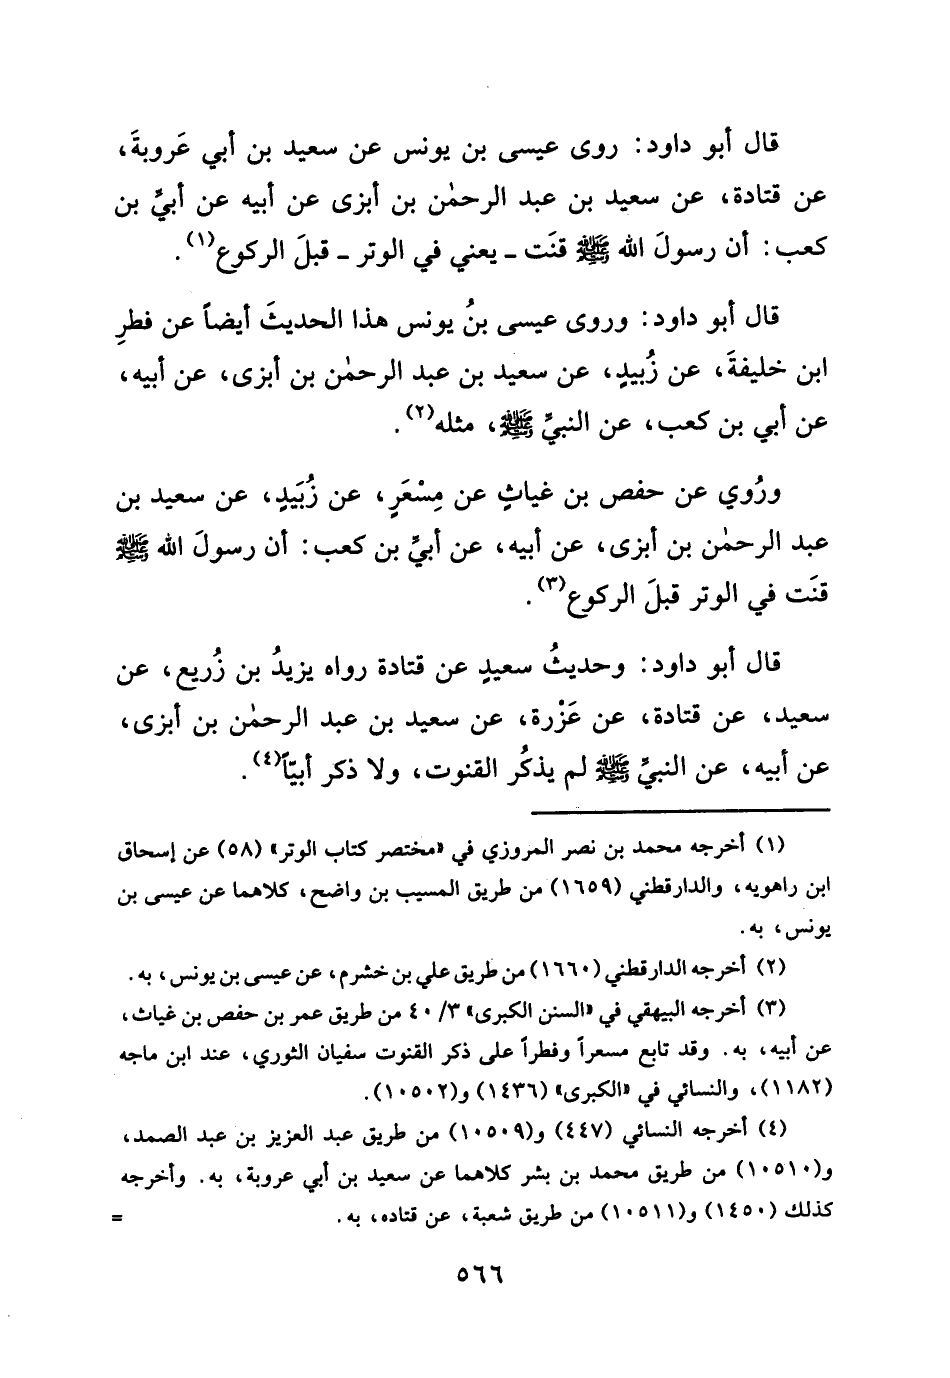 قال أبو داود: روى عيسى بن يونس عن سعيد بن أبي عَروبةَ،
عن قتادة، عن سعيد بن عبد الرحمٰن بن أبزى عن أبيه عن أبيِّ بن
كعب: أن رسولَ الله ﷺ قنَت ـ يعني في الوتر ـ قبلَ الركوع(١).
قال أبو داود: وروى عيسى بنُ يونس هذا الحديثَ أيضاً عن فطرِ
ابن خليفةَ، عن زُبيدٍ، عن سعيد بن عبد الرحمٰن بن أبزى، عن أبيه،
عن أبي بن كعب، عن النبيِّ ﷺ، مثله(٢).
ورُوي عن حفص بن غياثٍ عن مِسْعَرٍ، عن زُبَيدٍ، عن سعيد بن
عبد الرحمٰن بن أبزى، عن أبيه، عن أبيِّ بن كعب: أن رسولَ الله ﷺ
قنَت في الوتر قبلَ الركوع(٣).
قال أبو داود: وحديثُ سعيدٍ عن قتادة رواه يزيدُ بن زُريع، عن
سعيد، عن قتادة، عن عَزْرة، عن سعيد بن عبد الرحمٰن بن أبزى،
عن أبيه، عن النبيِّ ﷺ لم يذكُر القنوت، ولا ذكر أبيّاً(٤).
(١) أخرجه محمد بن نصر المروزي في «مختصر كتاب الوتر» (٥٨) عن إسحاق
ابن راهويه، والدارقطني (١٦٥٩) من طريق المسيب بن واضح، كلاهما عن عيسى بن
يونس، به.
(٢) أخرجه الدارقطني (١٦٦٠) من طريق علي بن خشرم، عن عيسى بن يونس، به.
(٣) أخرجه البيهقي في «السنن الكبرى» ٣/ ٤٠ من طريق عمر بن حفص بن غياث،
عن أبيه، به. وقد تابع مسعراً وفطراً على ذكر القنوت سفيان الثوري، عند ابن ماجه
(١١٨٢)، والنسائي في «الكبرى» (١٤٣٦) و(١٠٥٠٢).
(٤) أخرجه النسائي (٤٤٧) و(١٠٥٠٩) من طريق عبد العزيز بن عبد الصمد،
و(١٠٥١٠) من طريق محمد بن بشر كلاهما عن سعيد بن أبي عروبة، به. وأخرجه
كذلك (١٤٥٠) و(١٠٥١١) من طريق شعبة، عن قتاده، به. =
٥٦٦